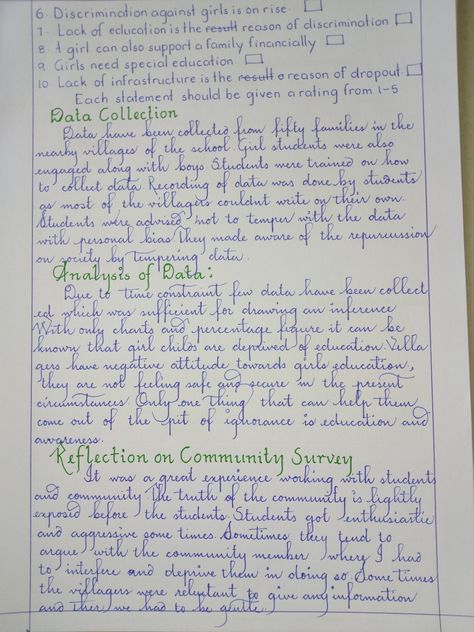 6. Discrimination against girls is on rise.
7. Lack of education is the result reason of discrimination
8. A girl can also support a family financially
9. Girls need special education
10. Lack of infrastructure is the result a reason of dropout
Each statement should be given a rating from 1-5
Data Collection
Data have been collected from fifty families in the
nearby villages of the school. Girl students were also
engaged along with boys Students were trained on how
to collect data. Recording of data was done by students
as most of the villagers couldnt write on their own.
Students were advised not to temper with the data
with personal bias They made aware of the repurcussion
on society by tempering data.
Analysis of Data:
Due to time constraint few data have been collect
ed which was sufficient for drawing an inference
With only charts and percentage figure it can be
known that girl childs are deprived of education. Villa
gers have negative attitude towards girls education,
they are not feeling safe and secure in the present
circumstances. Only one thing that can help them
come out of the pit of ignorance is education and
awareness.
Reflection on Community Survey
It was a great experience working with students
and community. The truth of the community is lightly
exposed before the students. Students got enthusiastic
and aggressive some times. Sometimes they tend to
argue with the community member where I had
to interfere and deprive them in doing so. Some times
the villagers were reluctant to give any information
and then we had to be gentle.